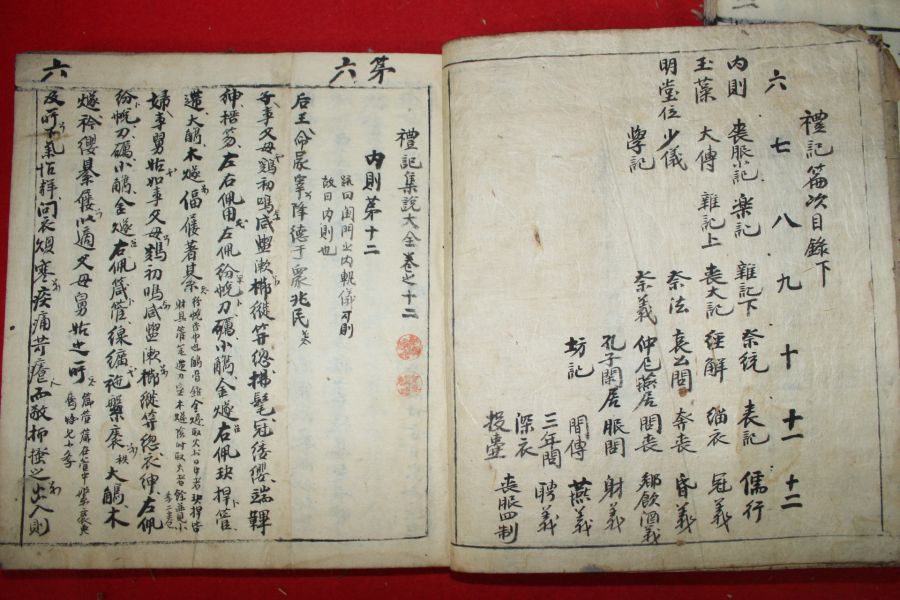 禮記篇次目錄下
六 七 八 九 十 十一 十二
內則 喪服小記 樂記 雜記下 祭統 表記 儒行
玉藻 大傳 雜記上 喪大記 經解 緇衣 冠義
明堂位 少儀 祭法 哀公問 奔喪 昏義
學記 祭義 仲尼燕居 問喪 鄉飲酒義
孔子閒居 服問 射義
坊記 間傳 燕義
三年問 聘義
深衣 喪服四制
投壺
六
禮記集說大全卷之十二
內則第十二
疏曰閨門之內軌儀可則
故曰內則也
后王命冢宰降德于衆兆民
子事父母鷄初鳴咸盥漱櫛縰笄總拂髦冠緌纓端韠
紳搢笏左右佩用左佩紛帨刀礪小觿金燧右佩玦捍管
遰大觿木燧偪屨著綦
婦事舅姑如事父母鷄初鳴咸盥漱櫛縰笄總衣紳左佩
紛帨刀礪小觿金燧右佩箴管線纊施縏袠大觿木
燧衿纓綦屨以適父母舅姑之所
及所下氣怡聲問衣燠寒疾痛苛癢而敬抑搔之出入則
六